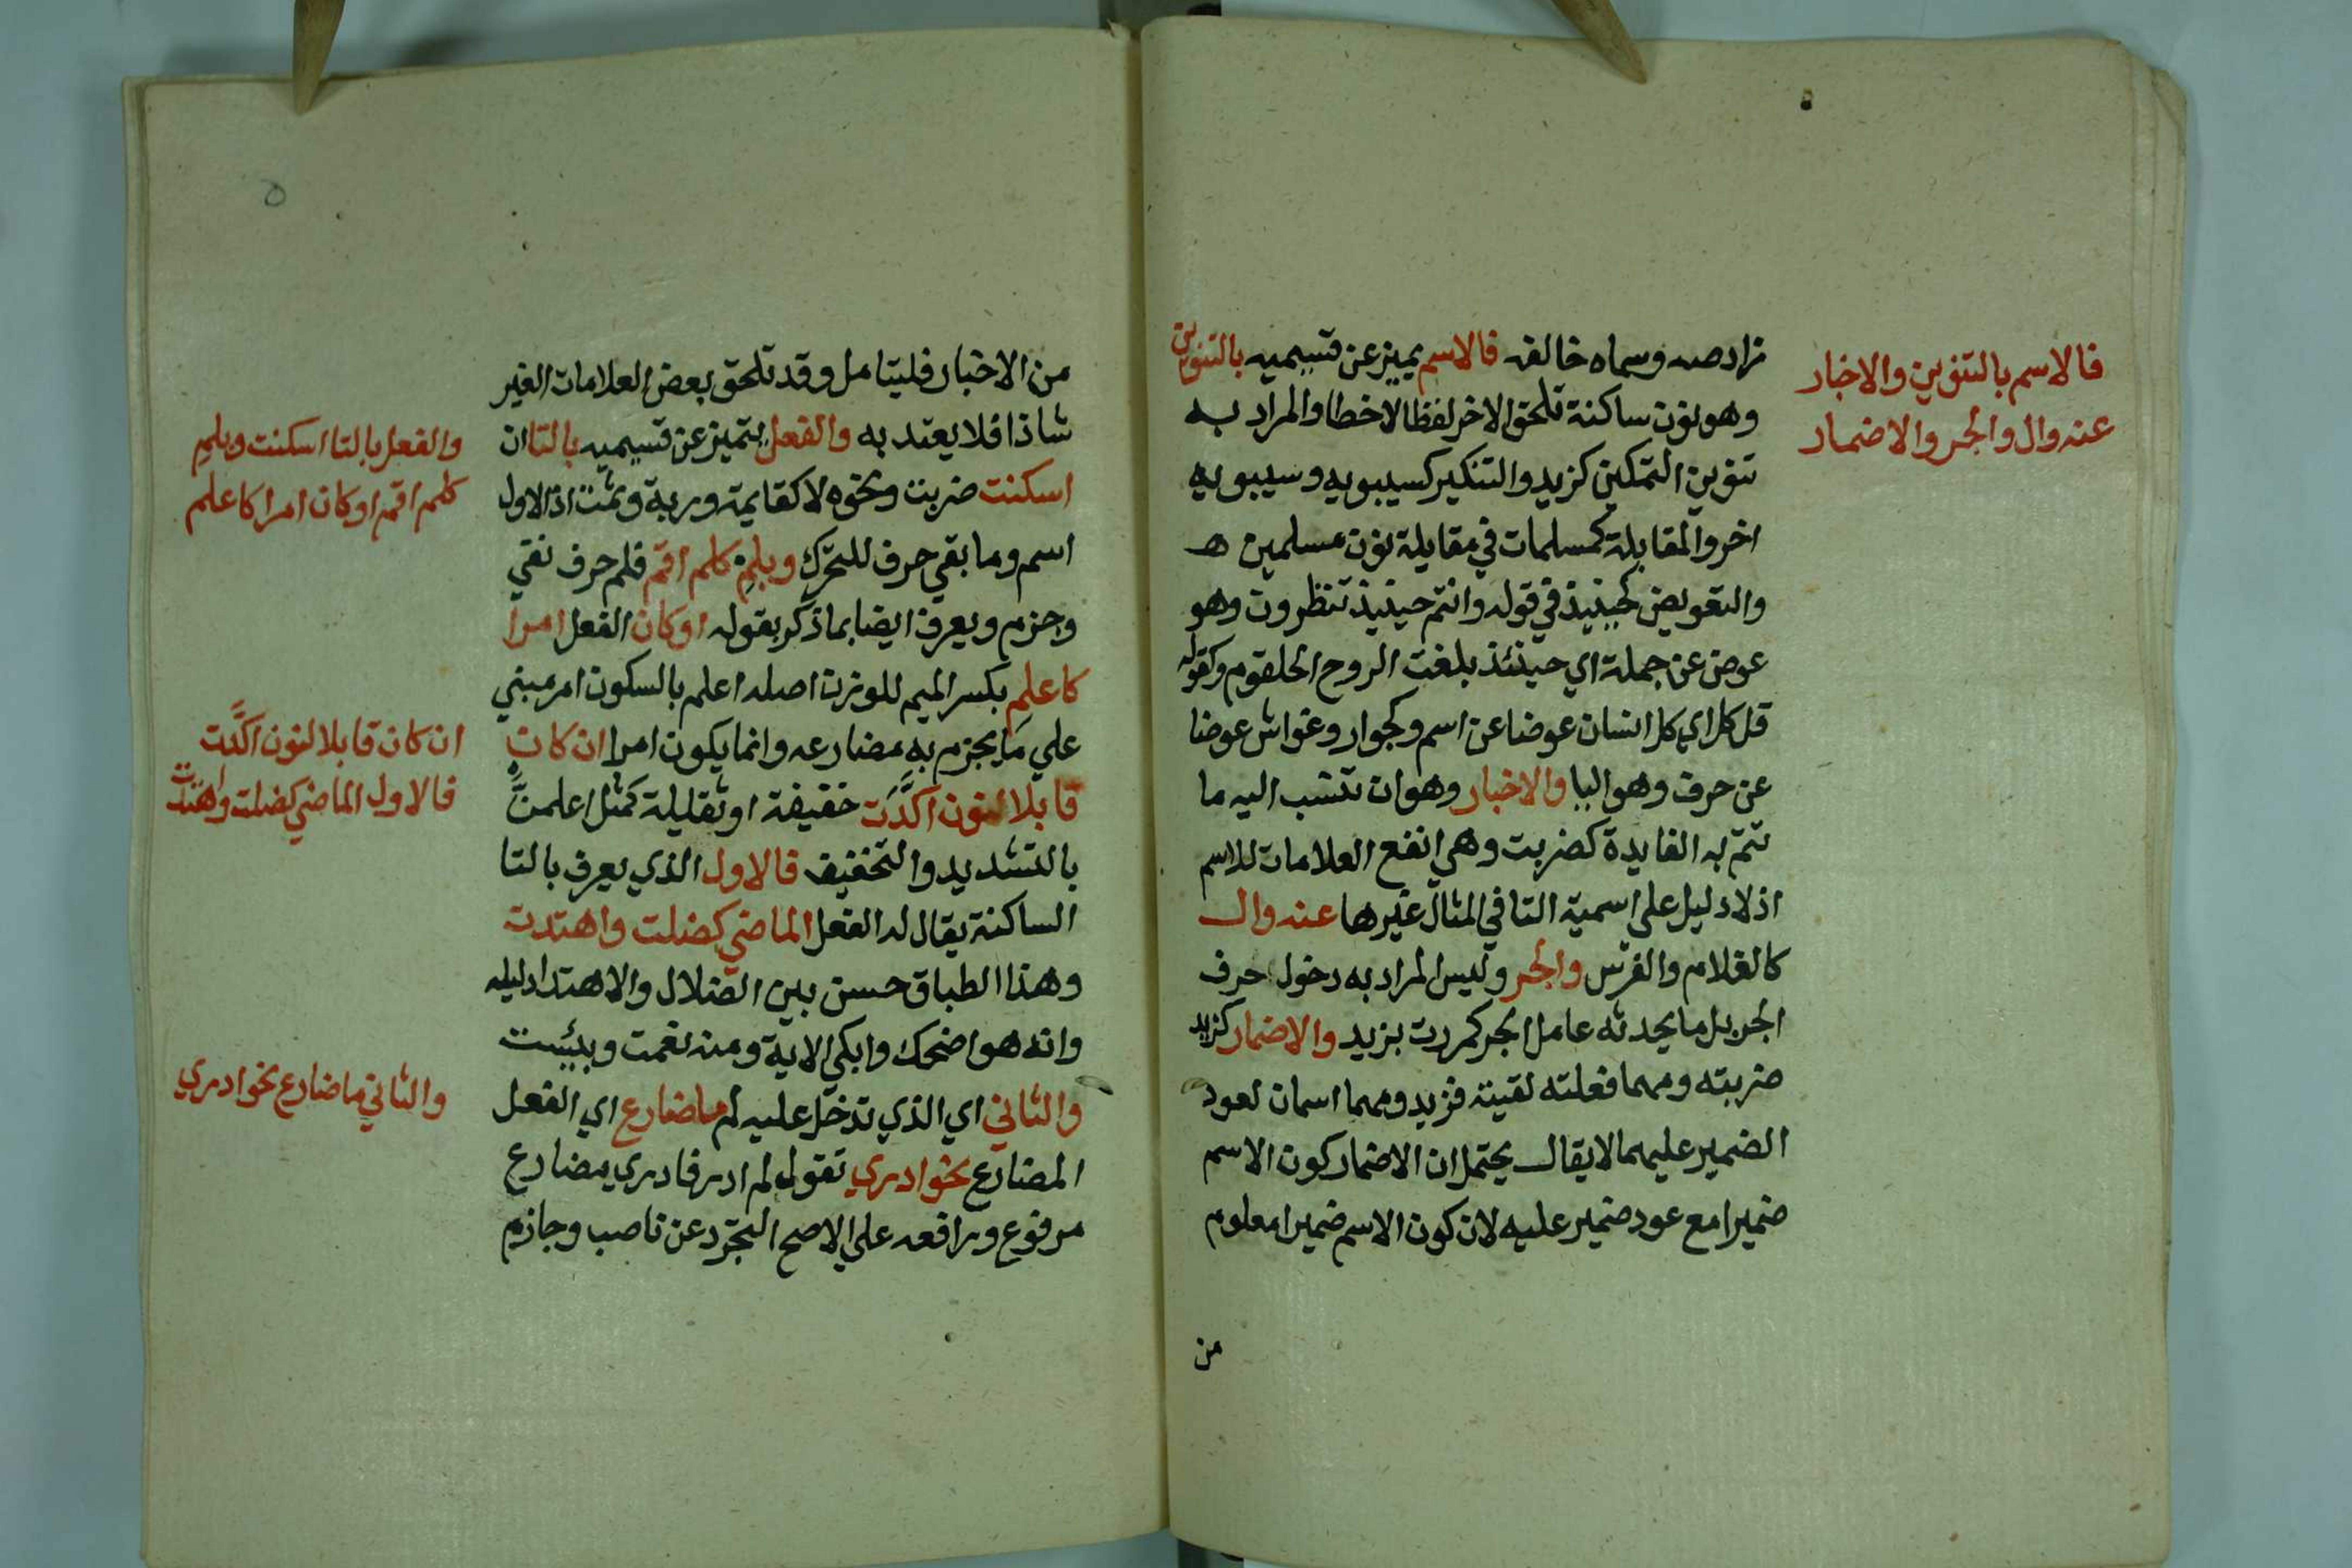 زاده صه وسماه خالفه فالاسم يميز عن قسيميه بالتنوين
وهو نون ساكنة تلحق الاخر لفظا لا خطا والمراد به
تنوين التمكين كزيد والتنكير كسيبويه وسيبويه
اخر والمقابلة كمسلمات في مقابلة نون مسلمين
والتعويض كحينيذ في قوله وانتم حينيذ تنظرون وهو
عوض عن جملة اي حينئذ بلغت الروح الحلقوم وكقوله
قل كل اي كل انسان عوضا عن اسم وكجوار وغواش عوضا
عن حرف وهو اليا والاخبار وهو ان تنسب اليه ما
تتم به الفايدة كضربت وهي انفع العلامات للاسم
اذ لا دليل على اسمية التا في المثال غيرها عنه وال
كالغلام والفرس والجر وليس المراد به دخول حرف
الجر بل ما يحدثه عامل الجر كمررت بزيد والاضمار كزيد
ضربته ومهما فعلته لقيته فزيد ومهما اسمان لعود
الضمير عليهما لا يقال يحتمل ان الاضمار كون الاسم
ضميرا مع عود ضمير عليه لان كون الاسم ضميرا معلوم
من
فالاسم بالتنوين والاخبار
عنه وال والجر والاضمار
من الاخبار فليتامل وقد تلحق بعض العلامات الغير
شاذا فلا يعتد به والفعل يتميز عن قسيميه بالتا ان
اسكنت ضربت ونحوه لا كقايمة وربة وثمت اذ الاول
اسم وما بقي حرف للتحرك وبلم كلم اقم فلم حرف نفي
وجزم ويعرف ايضا بما ذكر بقوله او كان الفعل امرا
كاعلم بكسر الميم للوزن اصله اعلم بالسكون امر مبني
علي ما يجزم به مضارعه وانما يكون امرا ان كان
قابلا لنون اكدت خفيفة او ثقليلة كمثل اعلمن
بالتشديد والتخفيف فالاول الذي يعرف بالتا
الساكنة يقال له الفعل الماضي كضلت واهتدت
وهذا الطباق حسن بين الضلال والاهتدا دليله
وانه هو اضحك وابكي الاية ومنه نعمت وبئست
والثاني اي الذي تدخل عليه لم ما ضارع اي الفعل
المضارع نحو ادري تقول لم ادر فادري مضارع
مرفوع ورافعه علي الاصح التجرد عن ناصب وجازم
والفعل بالتا اسكنت وبلم
كلم اقم او كان امرا كاعلم
ان كان قابلا لنون اكدت
فالاول الماضي كضلت واهتدت
والثاني ما ضارع نحو ادري